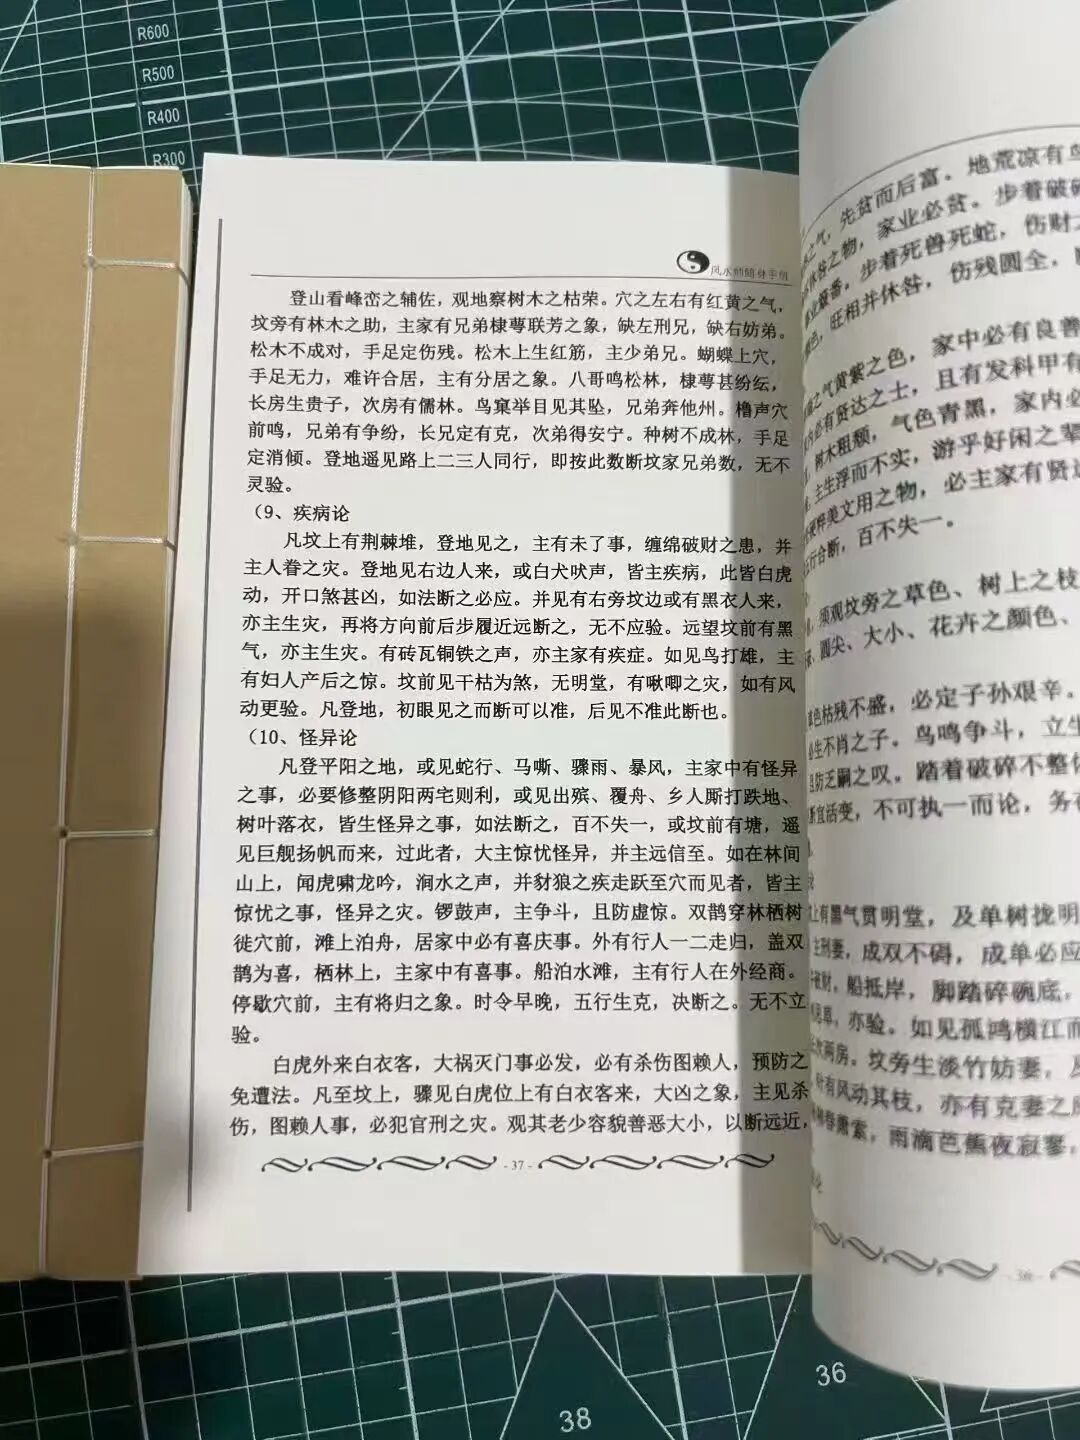 R600
R500
R400
R300
风水师随身手册
登山看峰峦之辅佐，观地察树木之枯荣。穴之左右有红黄之气，
坟旁有林木之助，主家有兄弟棣萼联芳之象，缺左刑兄，缺右妨弟。
松木不成对，手足定伤残。松木上生红筋，主少弟兄。蝴蝶上穴，
手足无力，难许合居，主有分居之象。八哥鸣松林，棣萼甚纷纭，
长房生贵子，次房有儒林。鸟窠举目见其坠，兄弟奔他州。橹声穴
前鸣，兄弟有争纷，长兄定有克，次弟得安宁。种树不成林，手足
定消倾。登地遥见路上二三人同行，即按此数断坟家兄弟数，无不
灵验。
（9、疾病论
凡坟上有荆棘堆，登地见之，主有未了事，缠绵破财之患，并
主人眷之灾。登地见右边人来，或白犬吠声，皆主疾病，此皆白虎
动，开口煞甚凶，如法断之必应。并见有右旁坟边或有黑衣人来，
亦主生灾，再将方向前后步履近远断之，无不应验。远望坟前有黑
气，亦主生灾。有砖瓦铜铁之声，亦主家有疾症。如见鸟打雄，主
有妇人产后之惊。坟前见干枯为煞，无明堂，有啾唧之灾，如有风
动更验。凡登地，初眼见之而断可以准，后见不准此断也。
（10、怪异论
凡登平阳之地，或见蛇行、马嘶、骤雨、暴风，主家中有怪异
之事，必要修整阴阳两宅则利，或见出殡、覆舟、乡人厮打跌地、
树叶落衣，皆生怪异之事，如法断之，百不失一，或坟前有塘，遥
见巨舰扬帆而来，过此者，大主惊忧怪异，并主远信至。如在林间
山上，闻虎啸龙吟，涧水之声，并豺狼之疾走跃至穴而见者，皆主
惊忧之事，怪异之灾。锣鼓声，主争斗，且防虚惊。双鹊穿林栖树
徙穴前，滩上泊舟，居家中必有喜庆事。外有行人一二走归，盖双
鹊为喜，栖林上，主家中有喜事。船泊水滩，主有行人在外经商。
停歇穴前，主有将归之象。时令早晚，五行生克，决断之。无不立
验。
白虎外来白衣客，大祸灭门事必发，必有杀伤图赖人，预防之
免遭法。凡至坟上，骤见白虎位上有白衣客来，大凶之象，主见杀
伤，图赖人事，必犯官刑之灾。观其老少容貌善恶大小，以断远近，
- 37 -
之气，先贫而后富。地荒凉有鸟
休咎之物，家业必贫。步着破碎
步着死兽死蛇，伤财
色，旺相并休咎，伤残圆全，
之气黄紫之色，家中必有良善
内必有贤达之士，且有发科甲有
树木粗颓，气色青黑，家内必
主生浮而不实，游乎好闲之辈
粹美文用之物，必主家有贤达
行合断，百不失一。
须观坟旁之草色、树上之枝
圆尖、大小、花卉之颜色、
草色枯残不盛，必定子孙艰辛。
必生不肖之子。鸟鸣争斗，立生
且防乏嗣之叹。踏着破碎不整体
断宜活变，不可执一而论，务
上有黑气贯明堂，及单树拢明
主刑妻，成双不碍，成单必应
破财，船抵岸，脚踏碎碗底，
亦验。如见孤鸿横江而
两房。坟旁生淡竹妨妻，
有风动其枝，亦有克妻之
萧索，雨滴芭蕉夜寂寥，
论
- 36 -
36
38